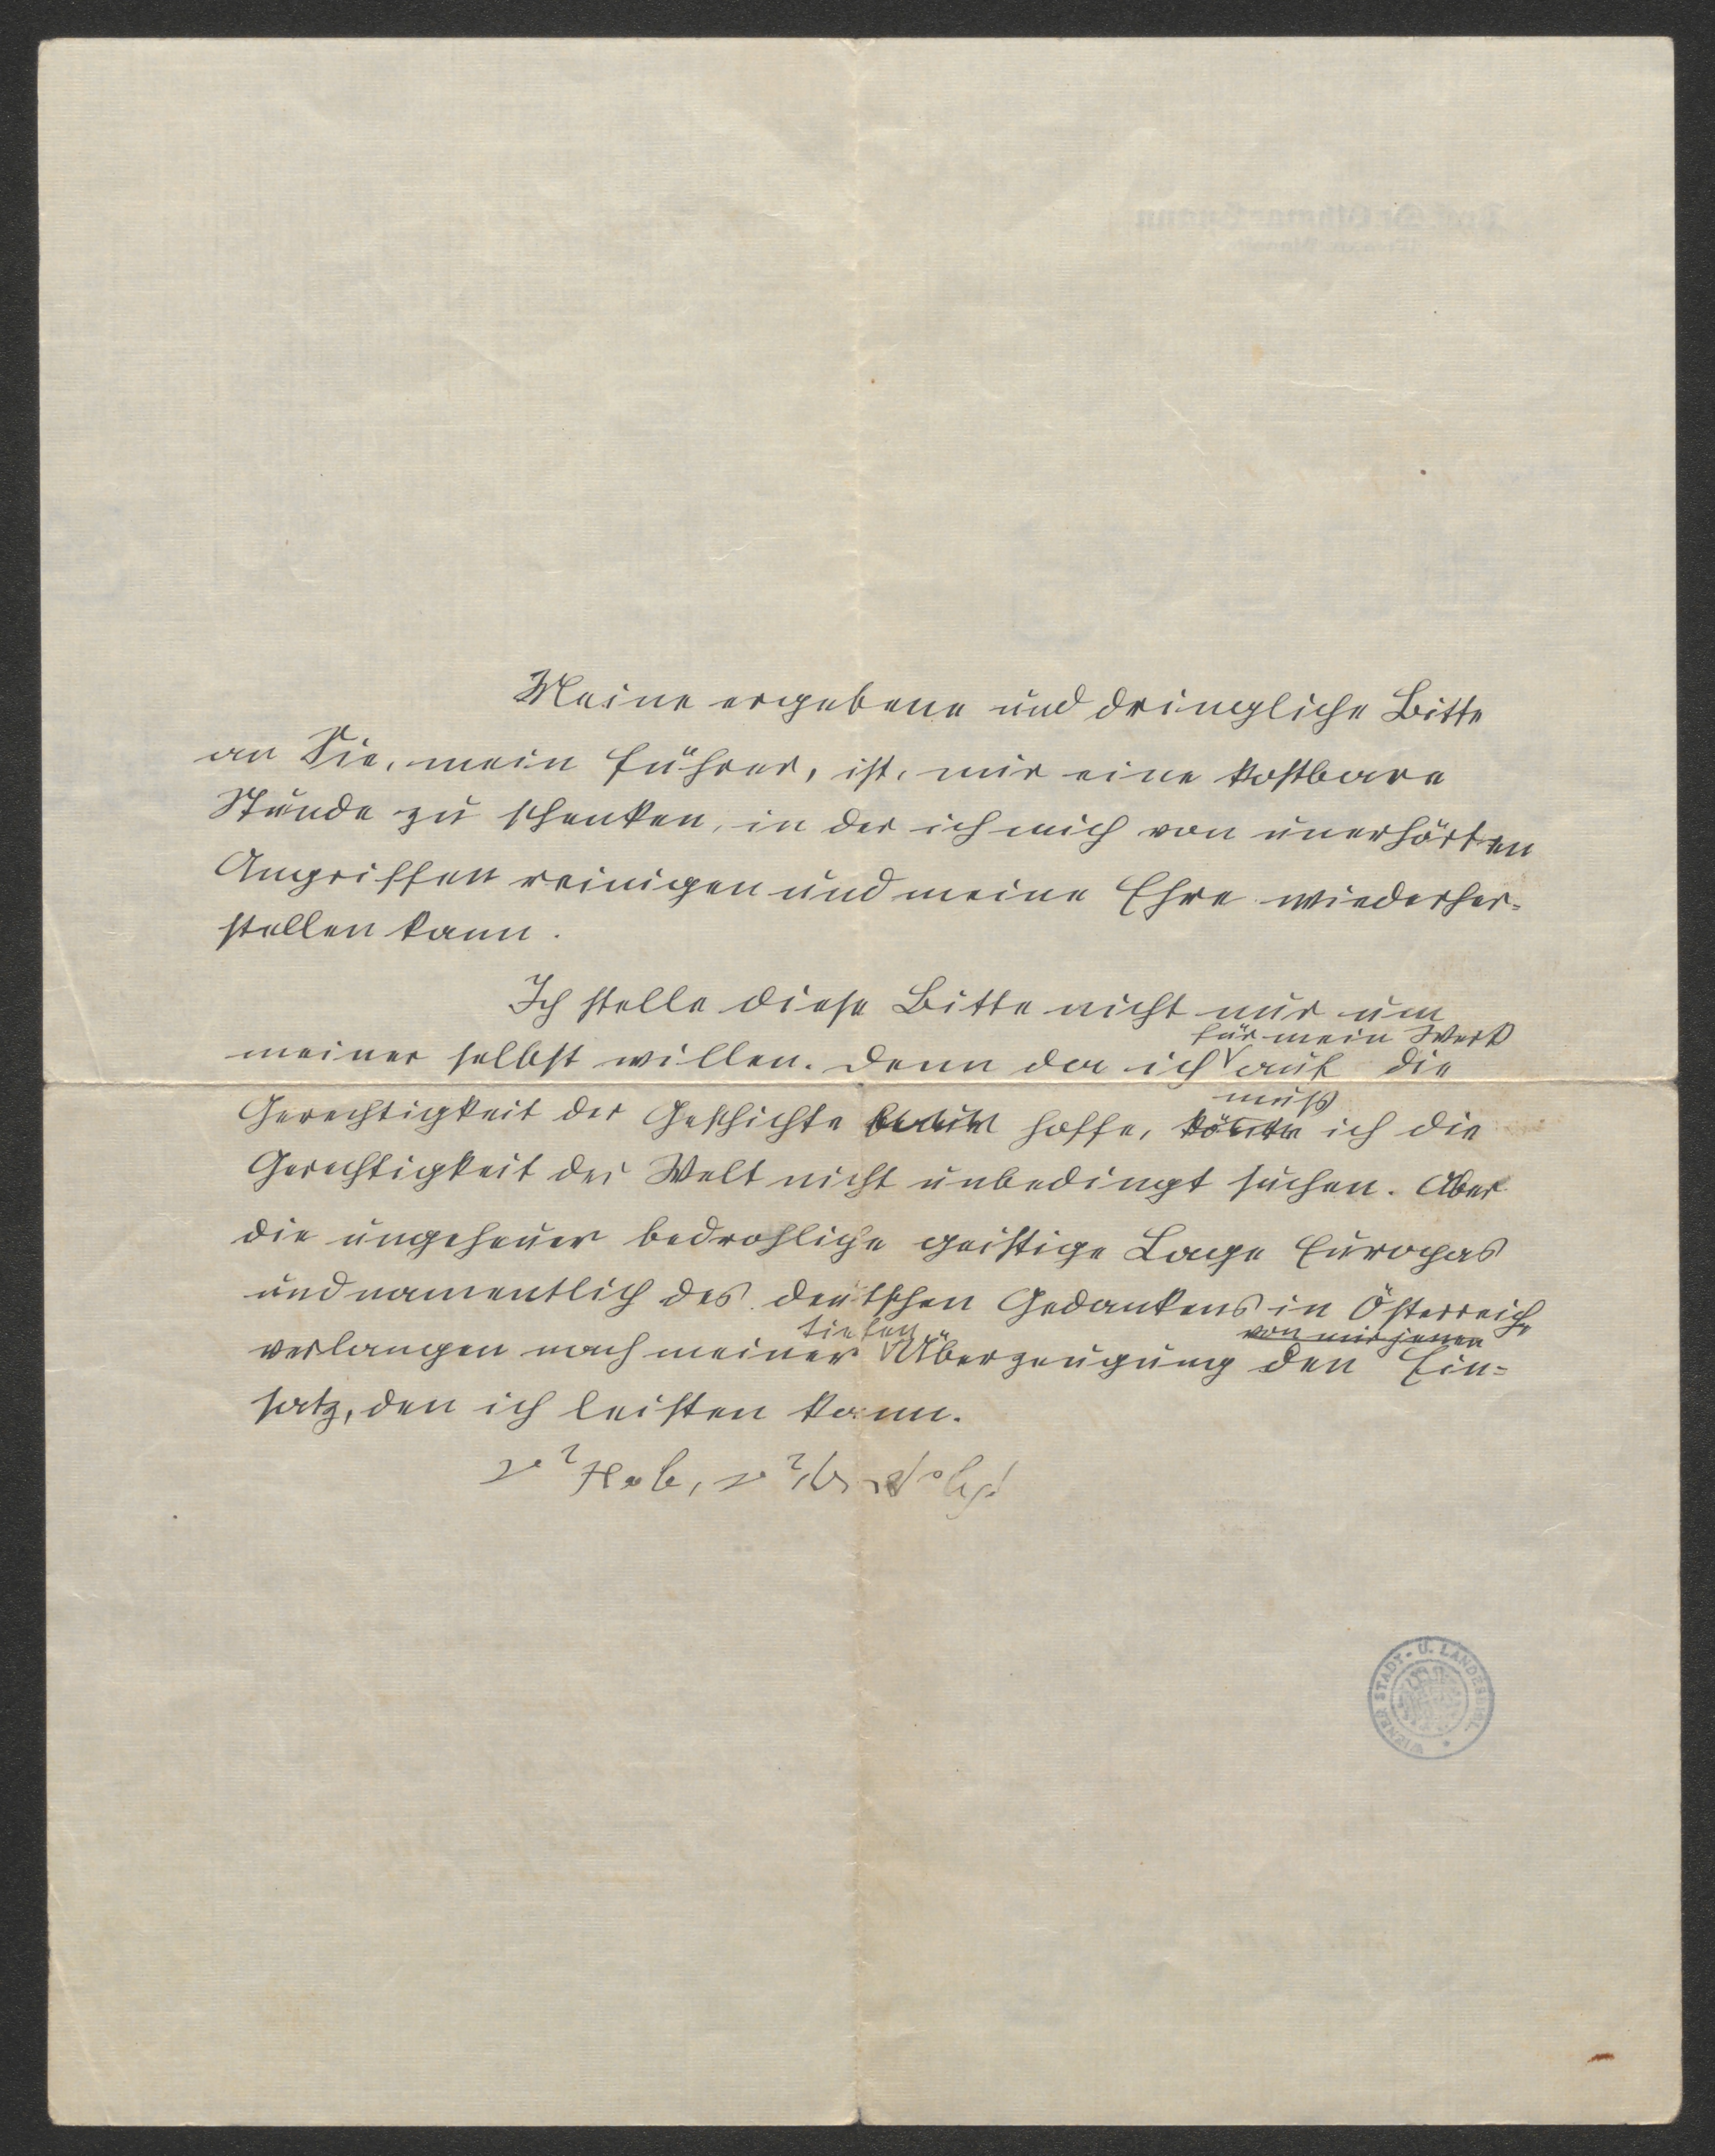 Meine ergebene und dringliche Bitte
an Sie, mein Führer, ist, mir eine kostbare
Stunde zu schenken, in der ich mich von unerhörten
Angriffen reinigen und meine Ehre wiederher-
stellen kann.
Ich stelle diese Bitte nicht nur um
meiner selbst willen. Denn da ich für mein Werk auf die
Gerechtigkeit der Geschichte hoffe, könnte muß ich die
Gerechtigkeit der Welt nicht unbedingt suchen. Aber
die ungeheuer bedrohliche geistige Lage Europas
und namentlich des deutschen Gedankens in Österreich
verlangen nach meiner tiefen Überzeugung den von mir jenen Ein-
satz, den ich leisten kann.
WIENER STADT- U. LANDESBIBL.